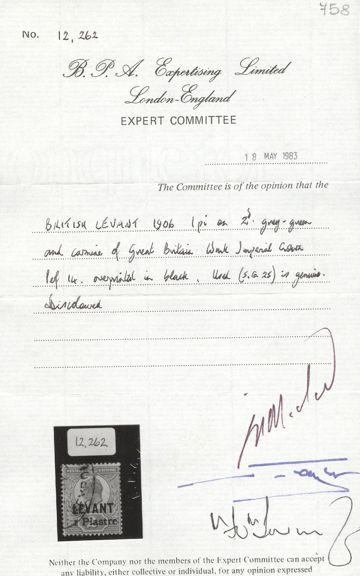 758
No. 12,262
B.P.A. Expertising Limited
London-England
EXPERT COMMITTEE
18 MAY 1983
The Committee is of the opinion that the
BRITISH LEVANT 1906 1pi on 2d grey-green
and carmine of Great Britain Wmk Imperial Crown
Perf 14. overprinted in black, Used (S.G. 25) is genuine.
Discoloured
12,262
LEVANT
1 Piastre
Neither the Company nor the members of the Expert Committee can accept
any liability, either collective or individual, for any opinion expressed